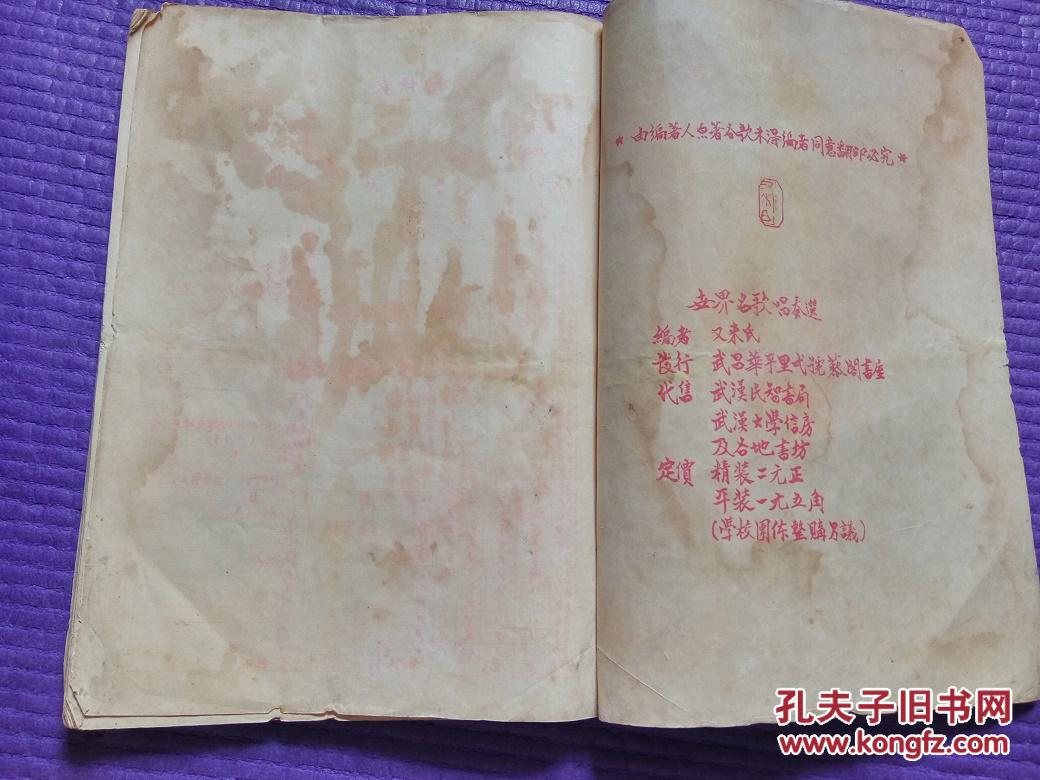 ★ 由編著人魚著各歌未得編者同意翻印必究 ★
世界名歌唱奏選
編者 又來民
發行 武昌華平里弍號藝閣書屋
代售 武漢民智書局
武漢大學信房
及各地書坊
定價 精装二元正
平装一元五角
(學校團体整購另議)
孔夫子旧书网
www.kongfz.com